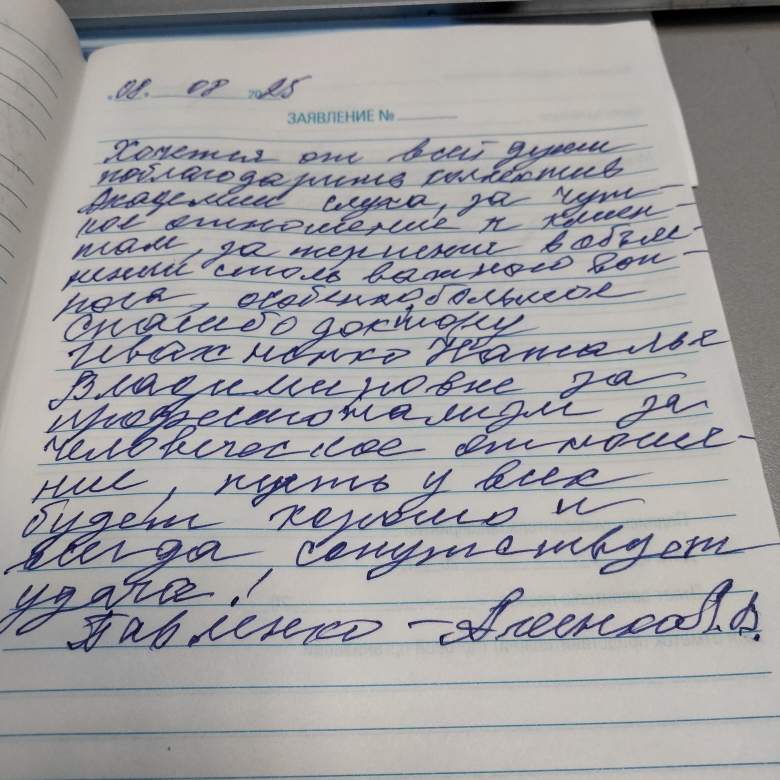 08. 08 2025
ЗАЯВЛЕНИЕ №
Хочется от всей души
поблагодарить коллектив
Академии слуха, за чут-
кое отношение к клиен-
там, за терпение в объяс-
нении столь важного воп-
роса, особенно большое
спасибо доктору
Ивахненко Наталье
Владимировне за
профессионализм за
человеческое отноше-
ние, пусть у всех
будет хорошо и
всегда сопутствует
удача!
Павленко -